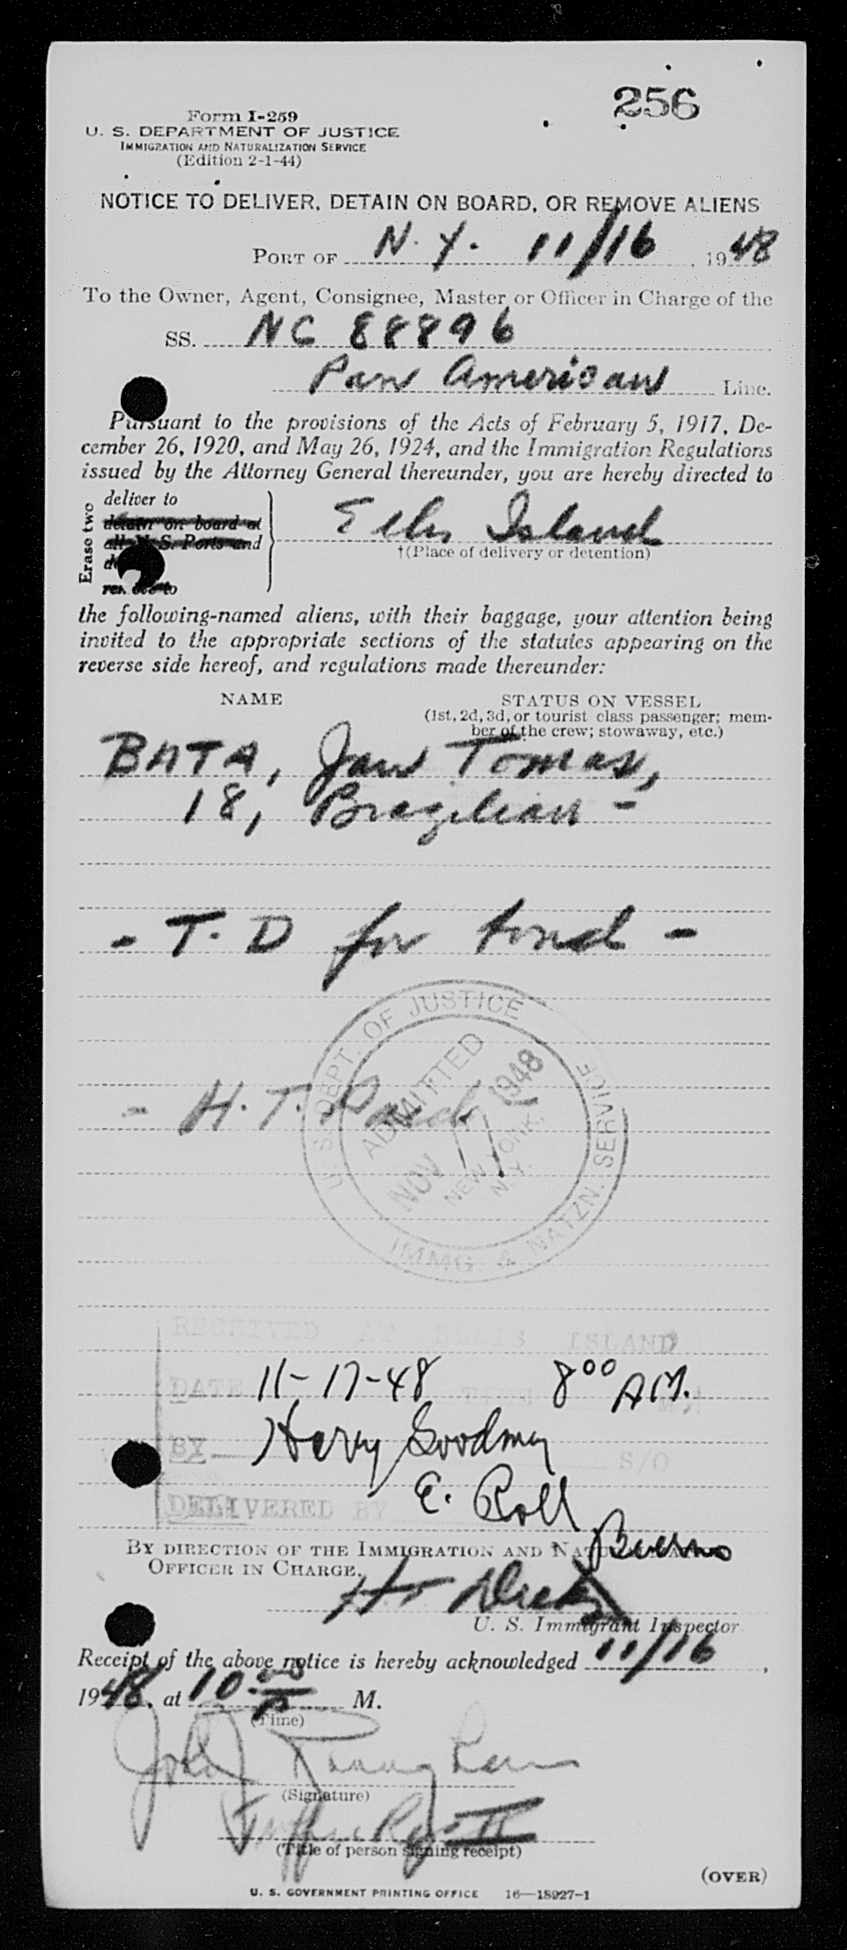 256
Form I-259
U. S. DEPARTMENT OF JUSTICE
IMMIGRATION AND NATURALIZATION SERVICE
(Edition 2-1-44)
NOTICE TO DELIVER, DETAIN ON BOARD, OR REMOVE ALIENS
PORT OF N. Y. 11/16, 1948
To the Owner, Agent, Consignee, Master or Officer in Charge of the
SS. NC 88896
Pan American Line.
Pursuant to the provisions of the Acts of February 5, 1917, De-
cember 26, 1920, and May 26, 1924, and the Immigration Regulations
issued by the Attorney General thereunder, you are hereby directed to
Erase two
deliver to
detain on board at
all U. S. Ports and
Ellis Island
†(Place of delivery or detention)
the following-named aliens, with their baggage, your attention being
invited to the appropriate sections of the statutes appearing on the
reverse side hereof, and regulations made thereunder:
NAME STATUS ON VESSEL
(1st, 2d, 3d, or tourist class passenger; mem-
ber of the crew; stowaway, etc.)
BATA, Jan Tomas,
18, Brazilian -
- T. D for bond -
- H. T. Paid -
U. S. DEPT. OF JUSTICE
ADMITTED
NOV 17 1948
NEW YORK,
N.Y.
IMMG. & NATZN. SERVICE
RECEIVED AT ELLIS ISLAND
DATE 11-17-48 TIME 8 00 AM.
BY Harry Goodman S/O
E. Roll
DELIVERED BY
Bueno
BY DIRECTION OF THE IMMIGRATION AND
OFFICER IN CHARGE.
U. S. Immigrant Inspector
Receipt of the above notice is hereby acknowledged 11/16,
1948, at 10 M.
(Time)
John J.
(Signature)
(Title of person signing receipt)
(OVER)
U. S. GOVERNMENT PRINTING OFFICE 16—18927-1